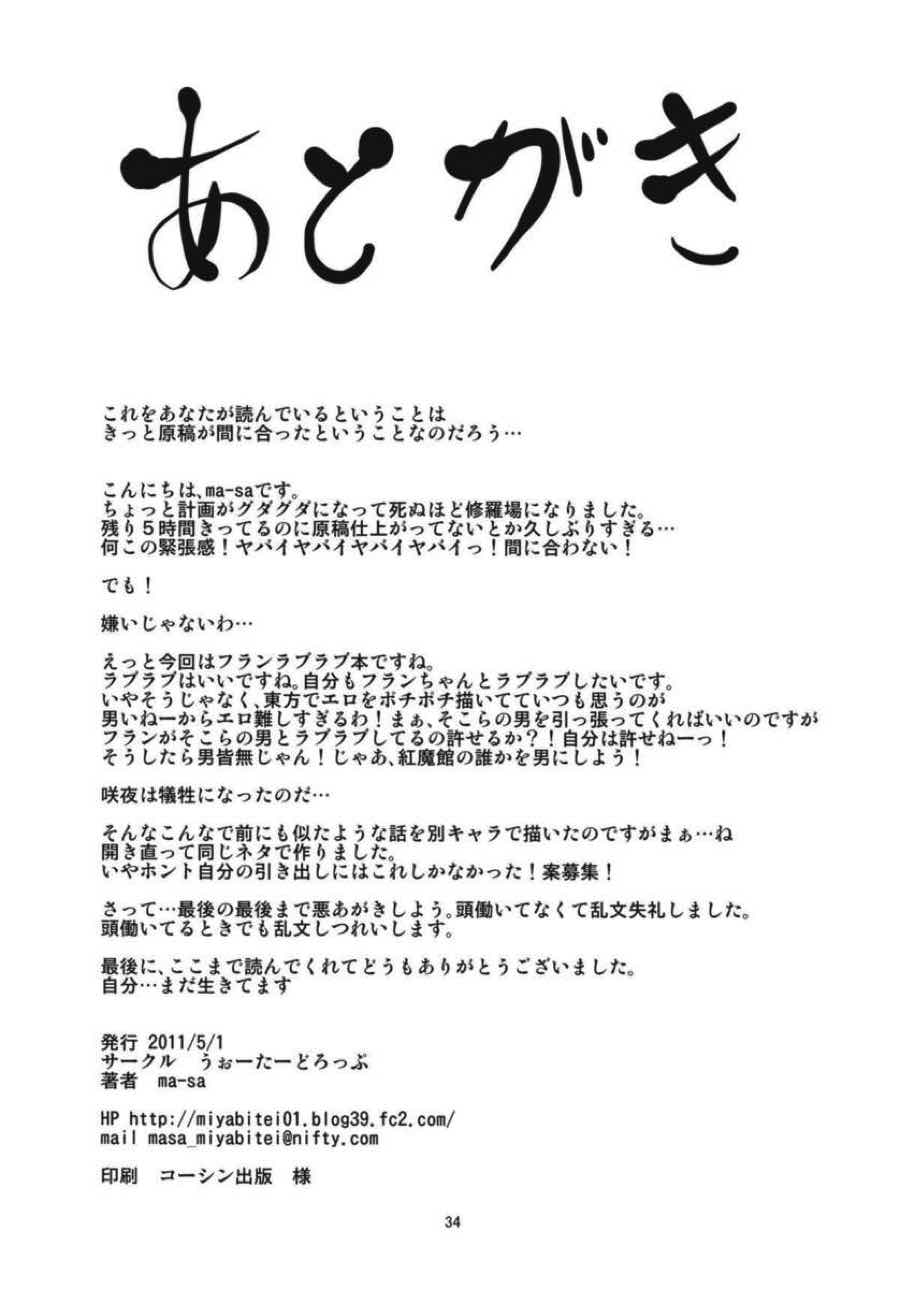 あとがき
これをあなたが読んでいるということは
きっと原稿が間に合ったということなのだろう…
こんにちは、ma-saです。
ちょっと計画がグダグダになって死ぬほど修羅場になりました。
残り５時間きってるのに原稿仕上がってないとか久しぶりすぎる…
何この緊張感！ヤバイヤバイヤバイヤバイっ！間に合わない！
でも！
嫌いじゃないわ…
えっと今回はフランラブラブ本ですね。
ラブラブはいいですね。自分もフランちゃんとラブラブしたいです。
いやそうじゃなく、東方でエロをボチボチ描いてていつも思うのが
男いねーからエロ難しすぎるわ！まぁ、そこらの男を引っ張ってくればいいのですが
フランがそこらの男とラブラブしてるの許せるか？！自分は許せねーっ！
そうしたら男皆無じゃん！じゃあ、紅魔館の誰かを男にしよう！
咲夜は犠牲になったのだ…
そんなこんなで前にも似たような話を別キャラで描いたのですがまぁ…ね
開き直って同じネタで作りました。
いやホント自分の引き出しにはこれしかなかった！案募集！
さって…最後の最後まで悪あがきしよう。頭働いてなくて乱文失礼しました。
頭働いてるときでも乱文しつれいします。
最後に、ここまで読んでくれてどうもありがとうございました。
自分…まだ生きてます
発行 2011/5/1
サークル　うぉーたーどろっぷ
著者　ma-sa
HP http://miyabitei01.blog39.fc2.com/
mail masa_miyabitei@nifty.com
印刷　コーシン出版　様
34